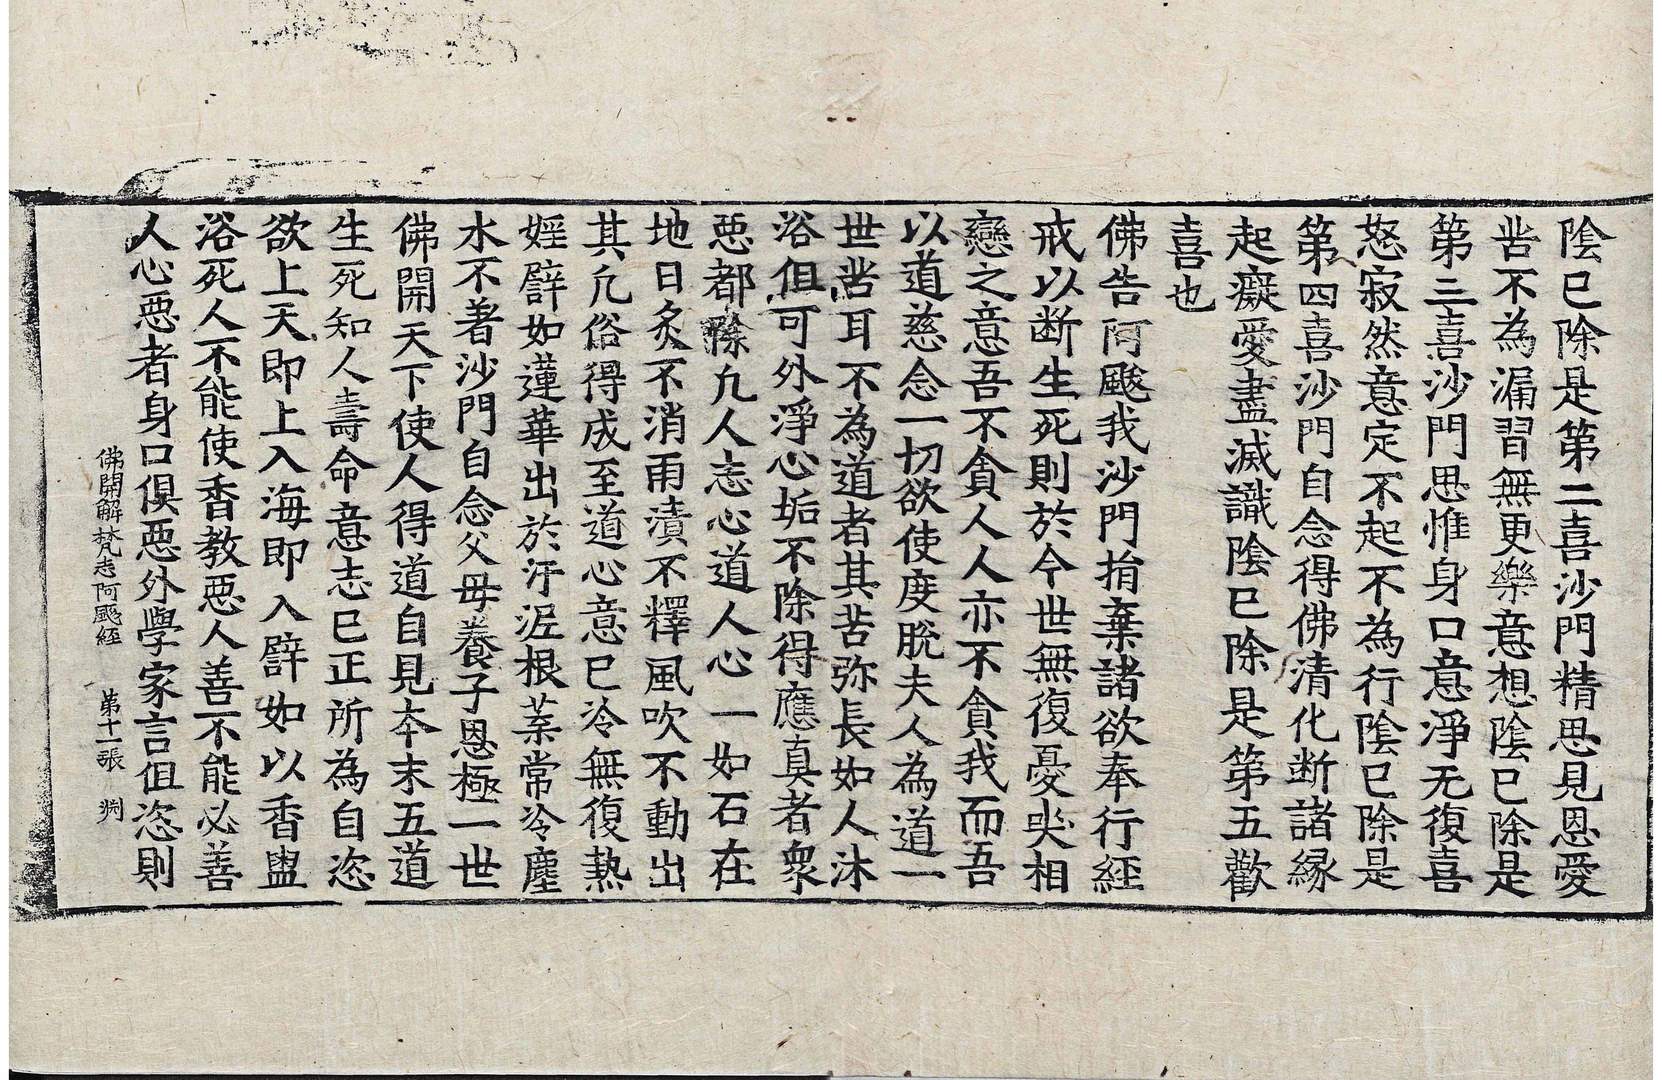 陰已除是第二喜沙門精思見恩愛
苦不為漏習無更樂意想陰已除是
第三喜沙門思惟身口意淨无復喜
怒寂然意定不起不為行陰已除是
第四喜沙門自念得佛清化断諸縁
起癡愛盡滅識陰已除是第五歡
喜也
佛告阿颰我沙門捐棄諸欲奉行經
戒以断生死則於今世無復憂哭相
戀之意吾不貪人人亦不貪我而吾
以道慈念一切欲使度脫夫人為道一
世苦耳不為道者其苦弥長如人沐
浴但可外淨心垢不除得應真者衆
惡都除凡人志心道人心一如石在
地日炙不消雨漬不釋風吹不動出
其凢俗得成至道心意已冷無復熱
婬譬如蓮華出於汙泥根葉常冷塵
水不著沙門自念父母養子恩極一世
佛開天下使人得道自見本末五道
生死知人壽命意志已正所為自恣
欲上天即上入海即入譬如以香盥
浴死人不能使香教惡人善不能必善
人心惡者身口俱惡外學家言但恣則
佛開解梵志阿颰經 第十一張 渕